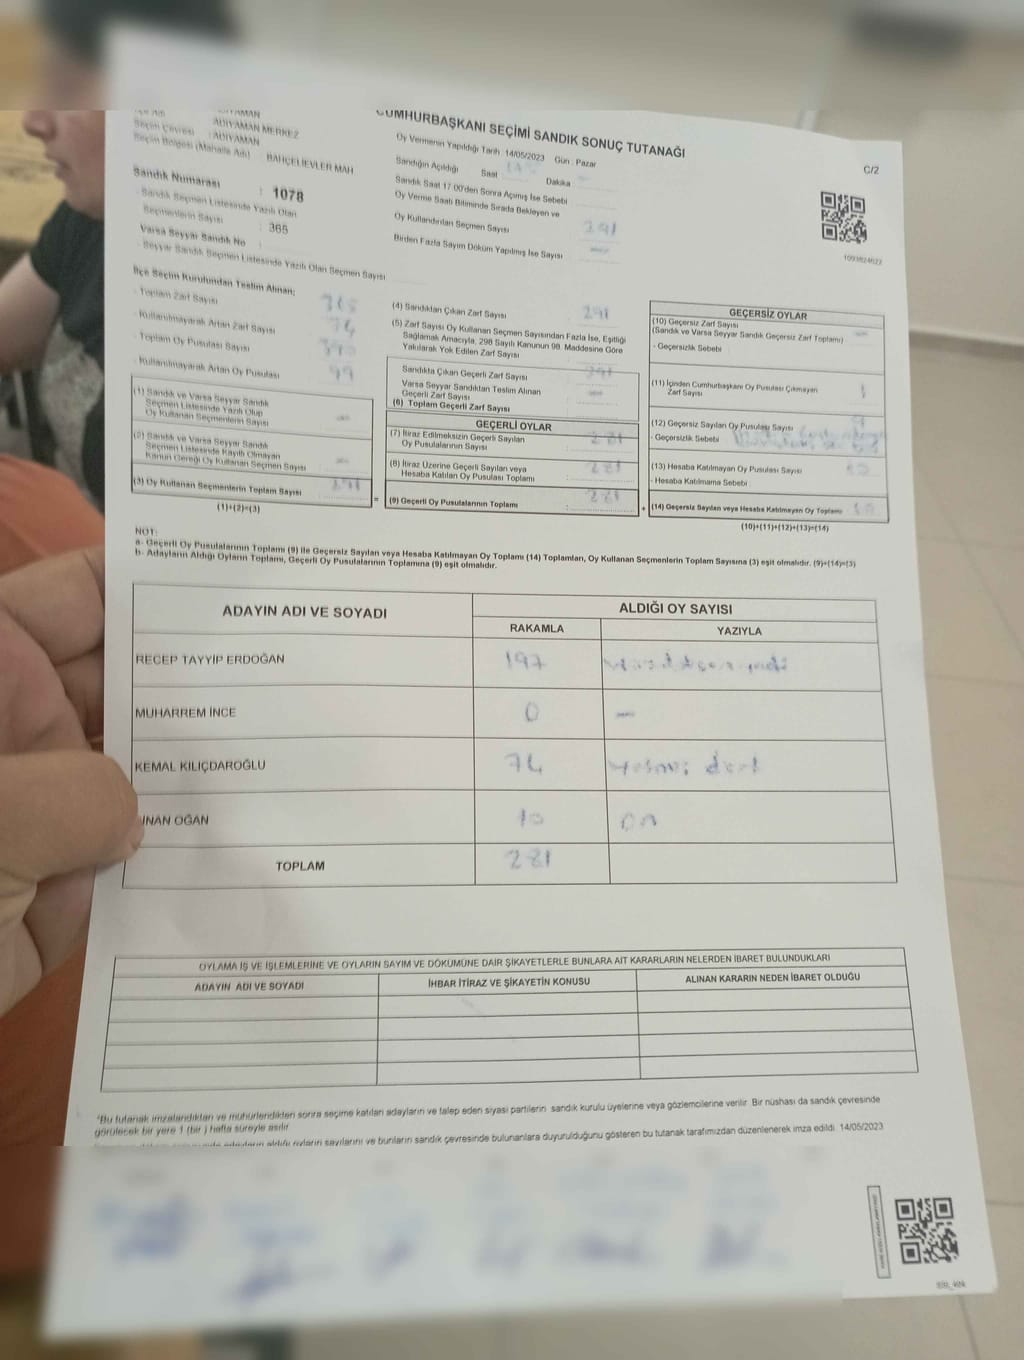 ADIYAMAN MERKEZ
Seçim Çevresi : ADIYAMAN
Seçim Bölgesi (Mahalle Adı) : BAHÇELİEVLER MAH
Sandık Numarası : 1078
Sandık Seçmen Listesinde Yazılı Olan
Seçmenlerin Sayısı : 365
Varsa Seyyar Sandık No
Seyyar Sandık Seçmen Listesinde Yazılı Olan Seçmen Sayısı
CUMHURBAŞKANI SEÇİMİ SANDIK SONUÇ TUTANAĞI
C/2
Oy Vermenin Yapıldığı Tarih : 14/05/2023 Gün : Pazar
Sandığın Açıldığı Saat Dakika
Sandık Saat 17:00'den Sonra Açılmış İse Sebebi
Oy Verme Saati Bitiminde Sırada Bekleyen ve
Oy Kullandırılan Seçmen Sayısı 291
Birden Fazla Sayım Döküm Yapılmış İse Sayısı —
İlçe Seçim Kurulundan Teslim Alınan;
- Toplam Zarf Sayısı 365
- Kullanılmayarak Artan Zarf Sayısı 74
- Toplam Oy Pusulası Sayısı 390
- Kullanılmayarak Artan Oy Pusulası 99
(1) Sandık ve Varsa Seyyar Sandık
Seçmen Listesinde Yazılı Olup
Oy Kullanan Seçmenlerin Sayısı —
(2) Sandık ve Varsa Seyyar Sandık
Seçmen Listesinde Kayıtlı Olmayan
Kanun Gereği Oy Kullanan Seçmen Sayısı —
(3) Oy Kullanan Seçmenlerin Toplam Sayısı 291
(1)+(2)=(3)
(4) Sandıktan Çıkan Zarf Sayısı 291
(5) Zarf Sayısı Oy Kullanan Seçmen Sayısından Fazla İse, Eşitliği
Sağlamak Amacıyla, 298 Sayılı Kanunun 98. Maddesine Göre
Yakılarak Yok Edilen Zarf Sayısı
Sandıkta Çıkan Geçerli Zarf Sayısı 291
Varsa Seyyar Sandıktan Teslim Alınan
Geçerli Zarf Sayısı —
(6) Toplam Geçerli Zarf Sayısı
GEÇERLİ OYLAR
(7) İtiraz Edilmeksizin Geçerli Sayılan
Oy Pusulalarının Sayısı 281
(8) İtiraz Üzerine Geçerli Sayılan veya
Hesaba Katılan Oy Pusulası Toplamı 281
= (9) Geçerli Oy Pusulalarının Toplamı : 281
GEÇERSİZ OYLAR
(10) Geçersiz Zarf Sayısı
(Sandık ve Varsa Seyyar Sandık Geçersiz Zarf Toplamı) —
- Geçersizlik Sebebi
(11) İçinden Cumhurbaşkanı Oy Pusulası Çıkmayan
Zarf Sayısı 1
(12) Geçersiz Sayılan Oy Pusulası Sayısı 9
- Geçersizlik Sebebi
(13) Hesaba Katılmayan Oy Pusulası Sayısı
- Hesaba Katılmama Sebebi
+ (14) Geçersiz Sayılan veya Hesaba Katılmayan Oy Toplamı 10
(10)+(11)+(12)+(13)=(14)
NOT:
a- Geçerli Oy Pusulalarının Toplamı (9) ile Geçersiz Sayılan veya Hesaba Katılmayan Oy Toplamı (14) Toplamları, Oy Kullanan Seçmenlerin Toplam Sayısına (3) eşit olmalıdır. (9)+(14)=(3)
b- Adayların Aldığı Oyların Toplamı, Geçerli Oy Pusulalarının Toplamına (9) eşit olmalıdır.
ADAYIN ADI VE SOYADI
ALDIĞI OY SAYISI
RAKAMLA YAZIYLA
RECEP TAYYİP ERDOĞAN 197
MUHARREM İNCE 0 —
KEMAL KILIÇDAROĞLU 74 Yetmiş dört
İNAN OĞAN 10 on
TOPLAM 281
OYLAMA İŞ VE İŞLEMLERİNE VE OYLARIN SAYIM VE DÖKÜMÜNE DAİR ŞİKAYETLERLE BUNLARA AİT KARARLARIN NELERDEN İBARET BULUNDUKLARI
ADAYIN ADI VE SOYADI İHBAR İTİRAZ VE ŞİKAYETİN KONUSU ALINAN KARARIN NEDEN İBARET OLDUĞU
*Bu tutanak imzalandıktan ve mühürlendikten sonra seçime katılan adayların ve talep eden siyasi partilerin sandık kurulu üyelerine veya gözlemcilerine verilir. Bir nüshası da sandık çevresinde
görülecek bir yere 1 (bir ) hafta süreyle asılır.
aldığı oyların sayılarını ve bunların sandık çevresinde bulunanlara duyurulduğunu gösteren bu tutanak tarafımızdan düzenlenerek imza edildi. 14/05/2023